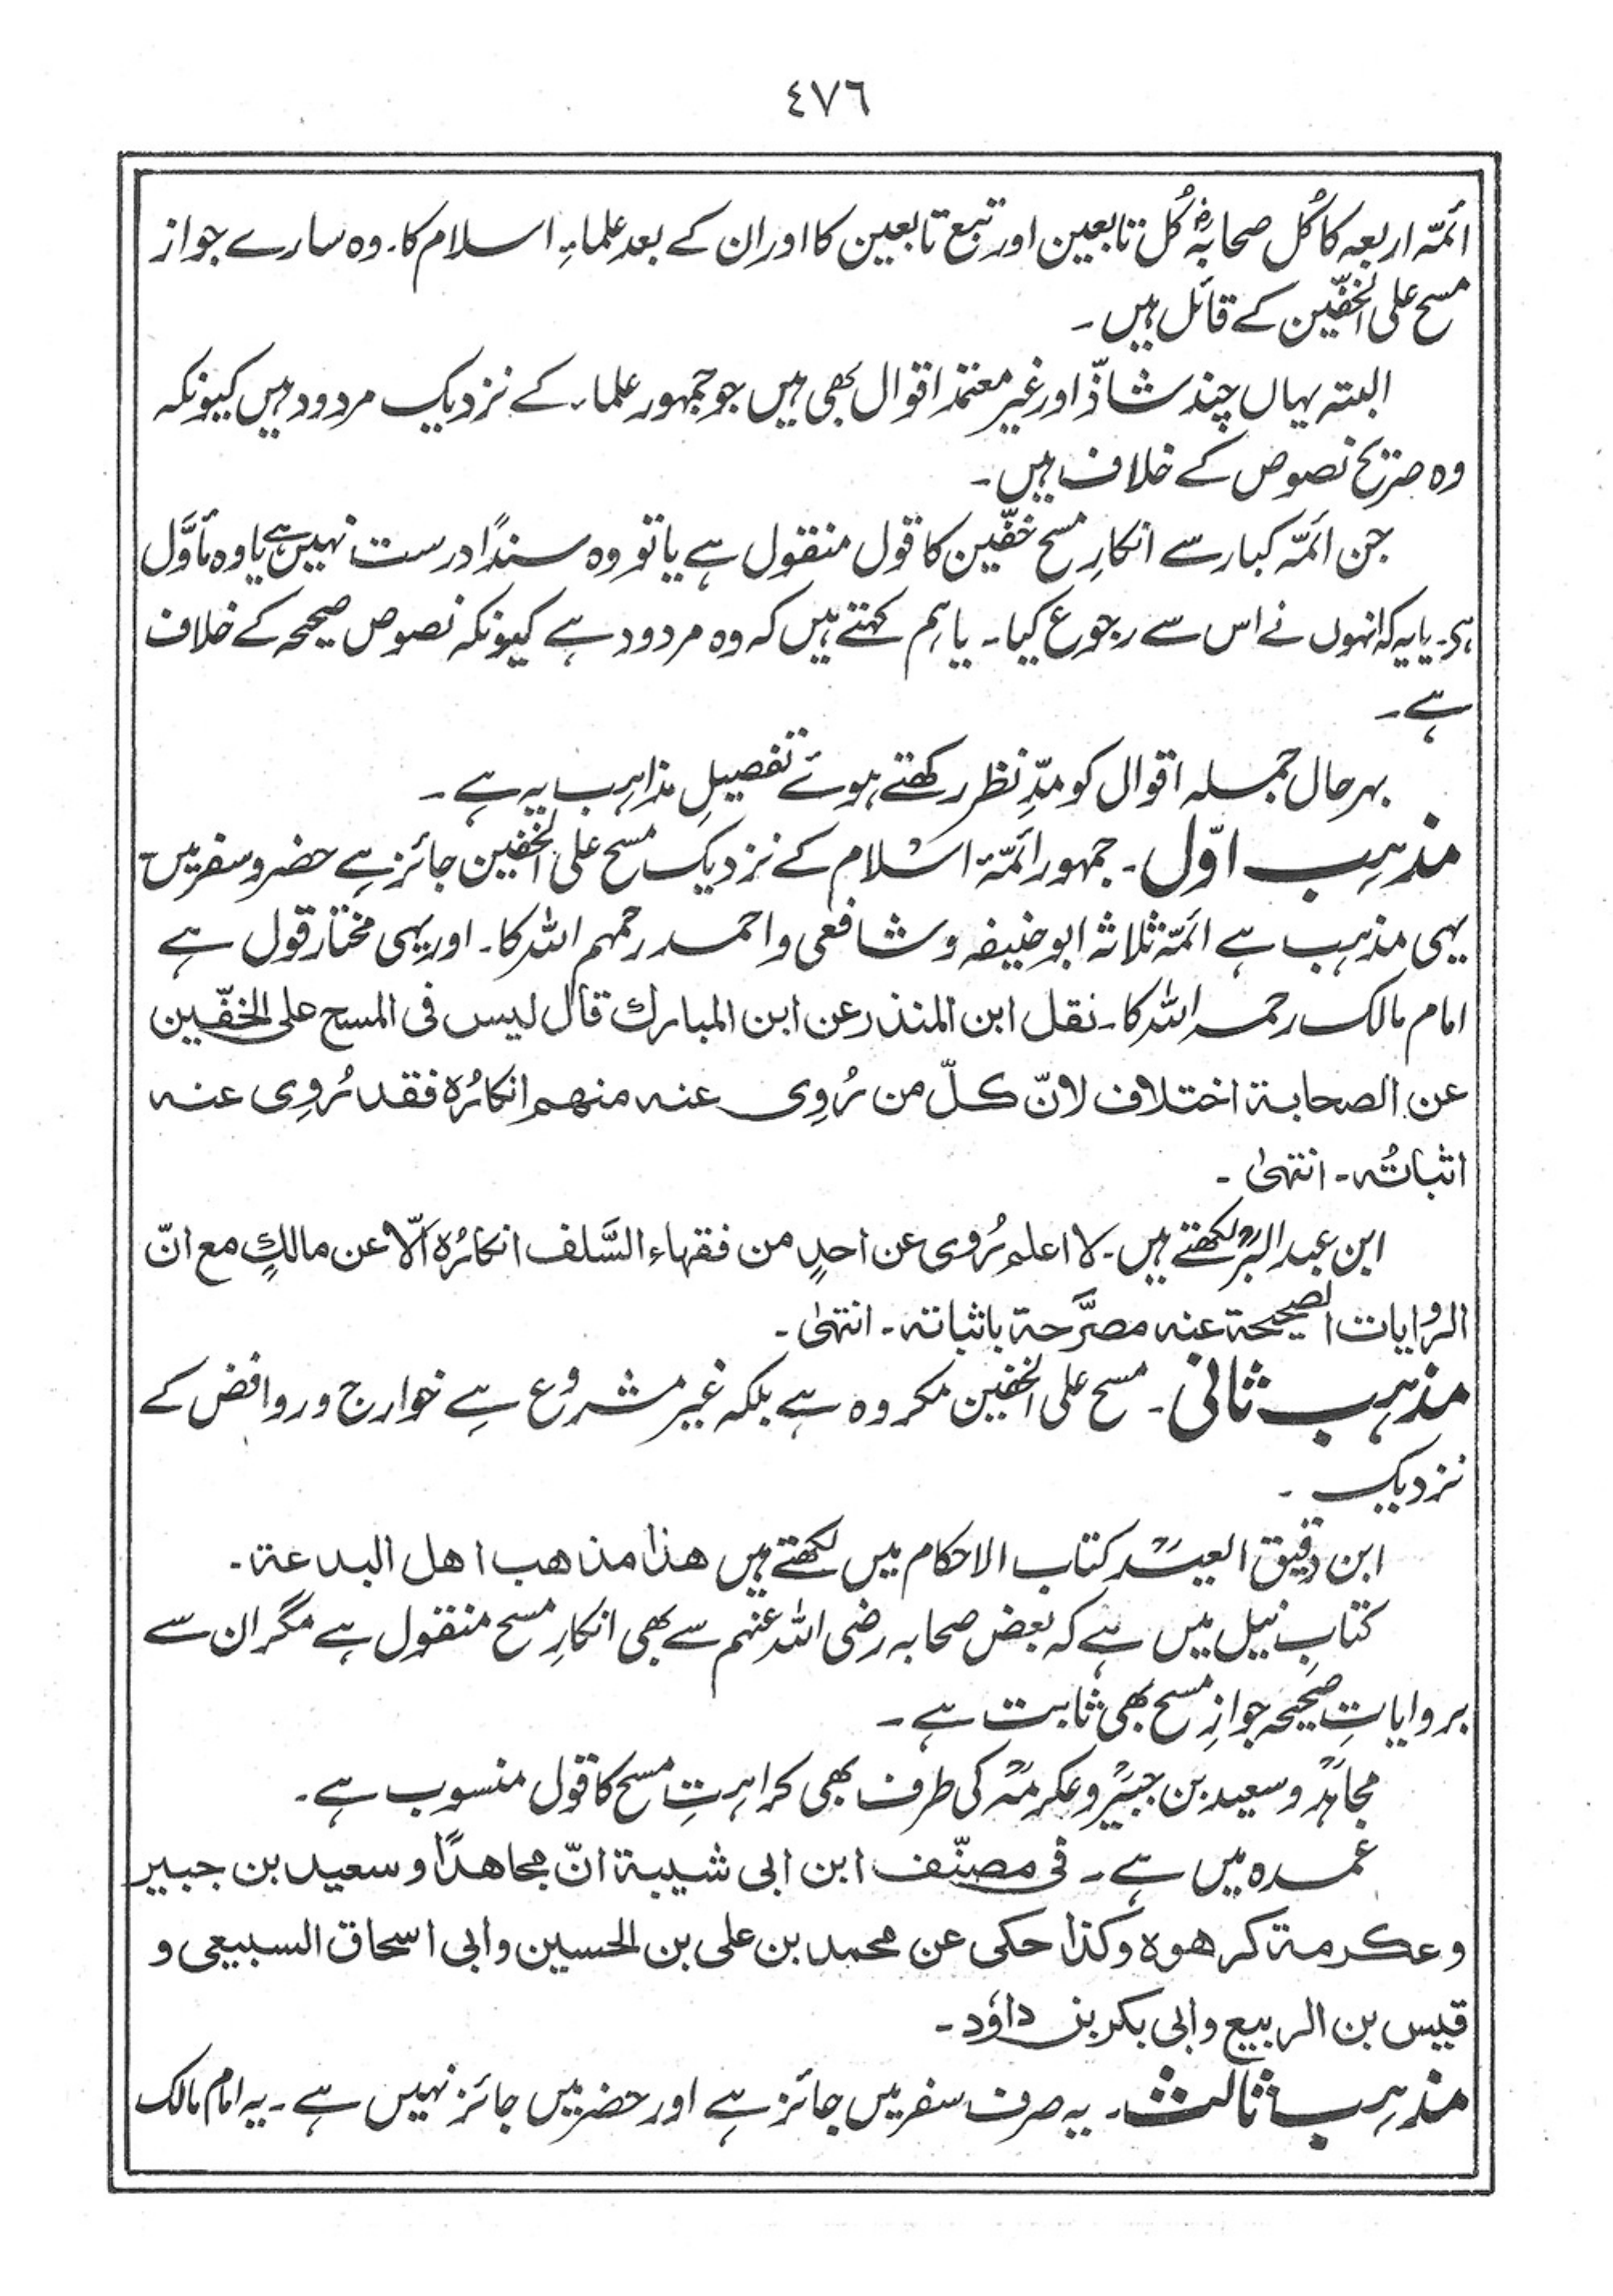 ٤٧٦
ائمّہ اربعہ کا کُل صحابہؓ کُل تابعین اور تبع تابعین کا اور ان کے بعد علماءِ اسلام کا۔ وہ سارے جواز
مسح علی الخفّین کے قائل ہیں۔
البتہ یہاں چند شاذّ اور غیر معتمد اقوال بھی ہیں جو جمہور علماء کے نزدیک مردود ہیں کیونکہ
وہ صریح نصوص کے خلاف ہیں۔
جن ائمّہ کبار سے انکارِ مسح خفّین کا قول منقول ہے یا تو وہ سنداً درست نہیں ہے یا وہ مأوَّل
ہے۔ یا یہ کہ انہوں نے اس سے رجوع کیا۔ یا ہم کہتے ہیں کہ وہ مردود ہے کیونکہ نصوص صحیحہ کے خلاف
ہے۔
بہرحال جملہ اقوال کو مدِّ نظر رکھتے ہوئے تفصیلِ مذاہب یہ ہے۔
مذہب اوّل۔ جمہور ائمّۃ اسلام کے نزدیک مسح علی الخفین جائز ہے حضر و سفر میں
یہی مذہب ہے ائمّہ ثلاثہ ابو حنیفہ و شافعی و احمد رحمہم اللہ کا۔ اور یہی مختار قول ہے
امام مالک رحمہ اللہ کا۔ نقل ابن المنذر عن ابن المبارك قال ليس فى المسح على الخفّين
عن الصحابة اختلاف لانّ كلّ من رُوِى عنه منهم انكارُه فقد رُوِى عنه
اثباتُه۔ انتهىٰ۔
ابن عبد البرؒ لکھتے ہیں۔ لا اعلم رُوى عن احدٍ من فقهاء السَّلف انكارُه الّا عن مالكٍ مع انّ
الروايات الصحيحة عنه مصرَّحة باثباته۔ انتهىٰ۔
مذہب ثانی۔ مسح علی الخفین مکروہ ہے بلکہ غیر مشروع ہے خوارج و روافض کے
نزدیک۔
ابن دقیق العیدؒ کتاب الاحکام میں لکھتے ہیں هذا مذهب اهل البدعة۔
کتابِ نیل میں ہے کہ بعض صحابہ رضی اللہ عنہم سے بھی انکارِ مسح منقول ہے مگر ان سے
بروایاتِ صحیحہ جوازِ مسح بھی ثابت ہے۔
مجاہدؒ و سعید بن جبیرؒ و عکرمہؒ کی طرف بھی کراہتِ مسح کا قول منسوب ہے۔
عمدہ میں ہے۔ فى مصنّف ابن ابى شيبة انّ مجاهدًا و سعيد بن جبير
و عكرمة كرهوه وكذا حكى عن محمد بن على بن الحسين وابى اسحاق السبيعى و
قيس بن الربيع وابى بكر بن داؤد۔
مذہب ثالث۔ یہ صرف سفر میں جائز ہے اور حضر میں جائز نہیں ہے۔ یہ امام مالک